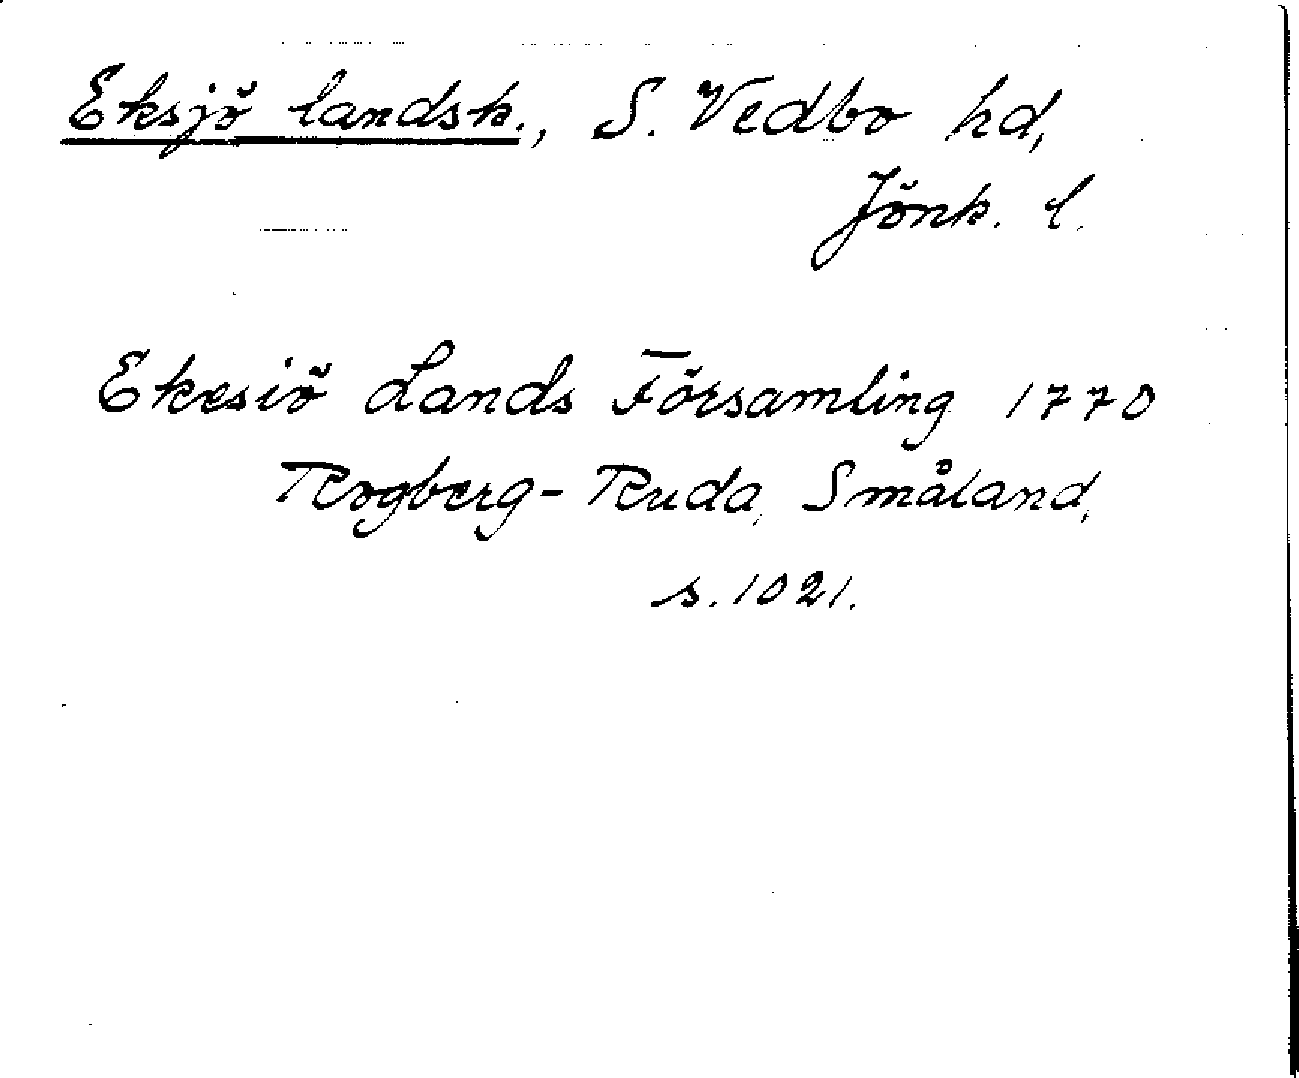 Eksjö landsk., S. Vedbo hd,
Jönk. l.
Ekesiö Lands Församling 1770
Rogberg-Ruda, Småland,
s. 1021.